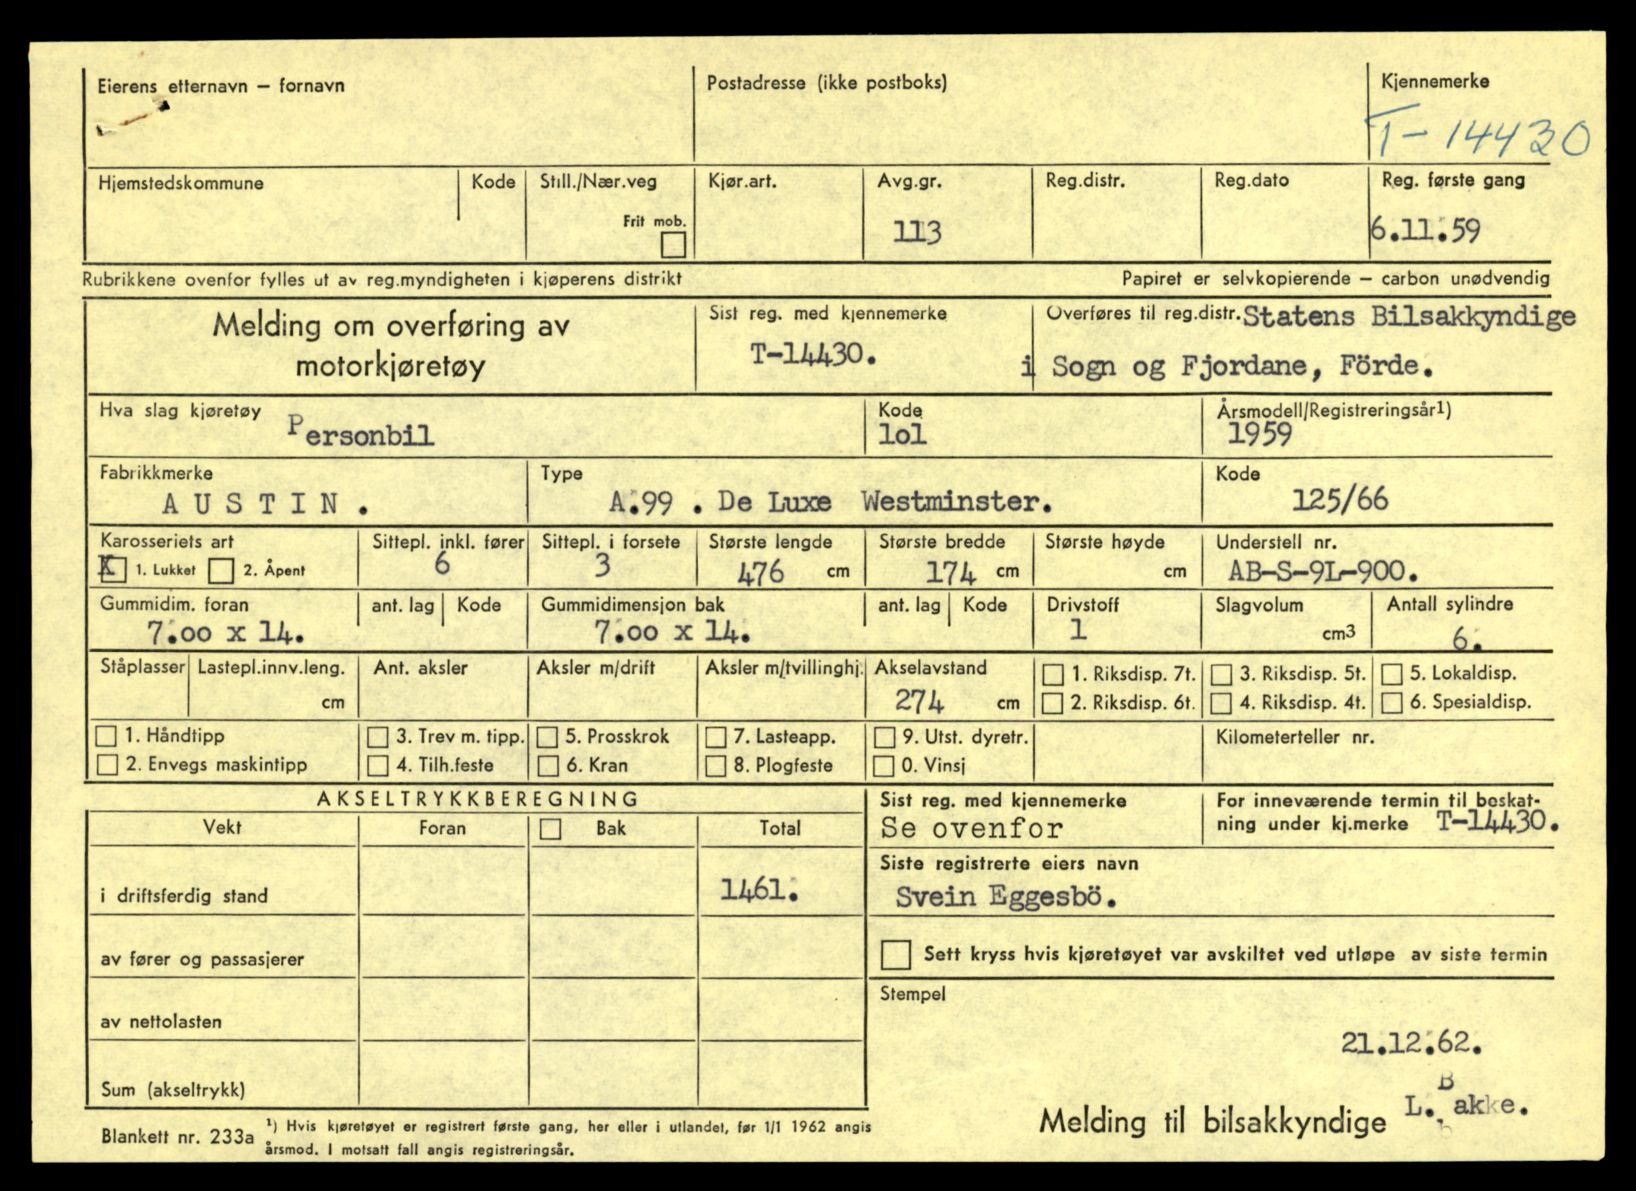 Eierens etternavn – fornavn
Postadresse (ikke postboks)
Kjennemerke
T-14430
Hjemstedskommune
Kode
Still./Nær.veg
Frit mob.
Kjør.art.
Avg.gr.
113
Reg.distr.
Reg.dato
Reg. første gang
6.11.59
Rubrikkene ovenfor fylles ut av reg.myndigheten i kjøperens distrikt
Papiret er selvkopierende – carbon unødvendig
Melding om overføring av
motorkjøretøy
Sist reg. med kjennemerke
T-14430.
Overføres til reg.distr. Statens Bilsakkyndige
i Sogn og Fjordane, Förde.
Hva slag kjøretøy
Personbil
Kode
lol
Årsmodell/Registreringsår1)
1959
Fabrikkmerke
AUSTIN.
Type
A.99 . De Luxe Westminster.
Kode
125/66
Karosseriets art
X 1. Lukket 2. Åpent
Sittepl. inkl. fører
6
Sittepl. i forsete
3
Største lengde
476 cm
Største bredde
174 cm
Største høyde
cm
Understell nr.
AB-S-9L-900.
Gummidim. foran
7.oo x 14.
ant. lag
Kode
Gummidimensjon bak
7.oo x 14.
ant. lag
Kode
Drivstoff
1
Slagvolum
cm3
Antall sylindre
6.
Ståplasser
Lastepl.innv.leng.
cm
Ant. aksler
Aksler m/drift
Aksler m/tvillinghj.
Akselavstand
274 cm
1. Riksdisp. 7t.
2. Riksdisp. 6t.
3. Riksdisp. 5t.
4. Riksdisp. 4t.
5. Lokaldisp.
6. Spesialdisp.
1. Håndtipp
2. Envegs maskintipp
3. Trev m. tipp.
4. Tilh.feste
5. Prosskrok
6. Kran
7. Lasteapp.
8. Plogfeste
9. Utst. dyretr.
0. Vinsj
Kilometerteller nr.
AKSELTRYKKBEREGNING
Vekt
Foran
Bak
Total
i driftsferdig stand
1461.
av fører og passasjerer
av nettolasten
Sum (akseltrykk)
Sist reg. med kjennemerke
Se ovenfor
For inneværende termin til beskat-
ning under kj.merke T-14430.
Siste registrerte eiers navn
Svein Eggesbö.
Sett kryss hvis kjøretøyet var avskiltet ved utløpe av siste termin
Stempel
21.12.62.
L. Bakke.
Melding til bilsakkyndige
Blankett nr. 233a
1) Hvis kjøretøyet er registrert første gang, her eller i utlandet, før 1/1 1962 angis
årsmod. I motsatt fall angis registreringsår.